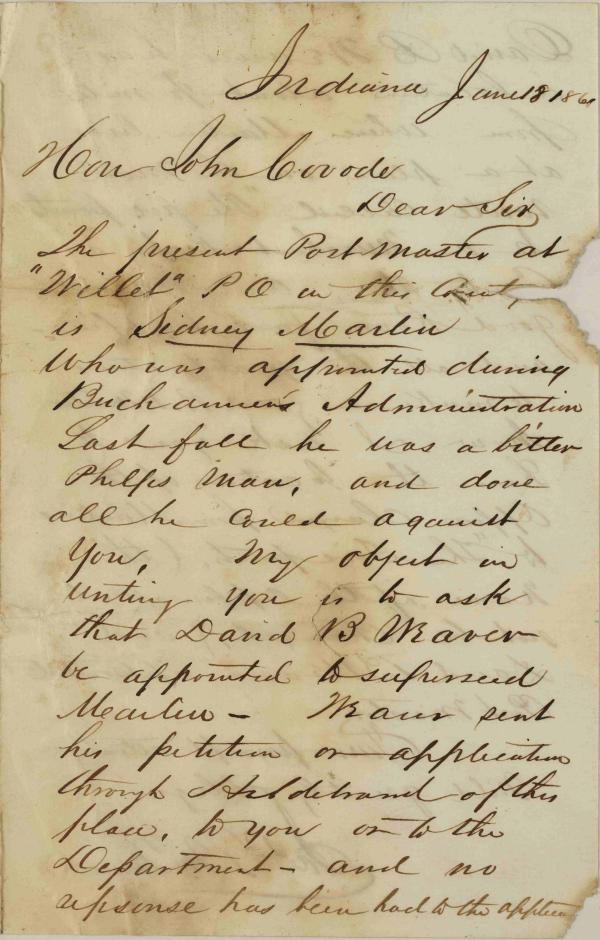 Indiana June 18 186
Hon John Covode
Dear Sir
The present Post Master at
"Willet" P O in this Count,
is Sidney Marlin
Who was appointed during
Buchannen's Administration
Last fall he was a bitter
Phelps man, and done
all he could against
you, My object in
writing you is to ask
that David B Weaver
be appointed to superseed
Marlin - Weaver sent
his petition or application
through Hildebrand of this
place, to you or to the
Department - and no
repsonse has been had to the